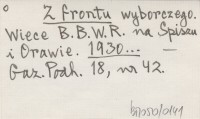 Z frontu wyborczego.
Wiece B.B.W.R. na Spiszu
i Orawie. 1930... —
Gaz. Podh. 18, nr 42.